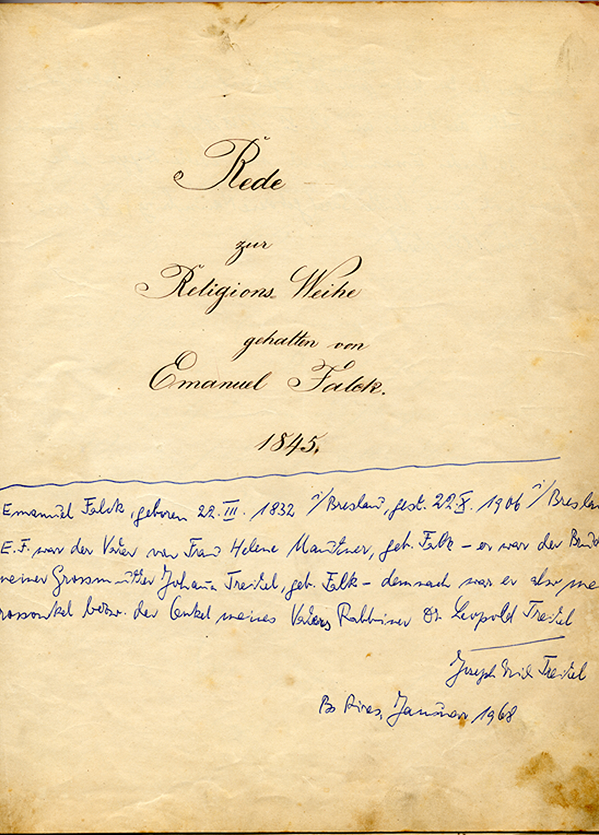 Rede
zur
Religions Weihe
gehalten von
Emanuel Falck.
1845.
Emanuel Falck, geboren 22. III. 1832 i/Breslau, gest. 22. X. 1906 i/Breslau
E.F. war der Vater von Frau Helene Mautner, geb. Falk – er war der Brud
meiner Grossmutter Johanna Treitel, geb. Falk – demnach war er also me
rossonkel bezw. der Onkel meines Vaters Rabbiner Dr. Leopold Treitel
Joseph Treitel
Bs Aires, Januar 1968